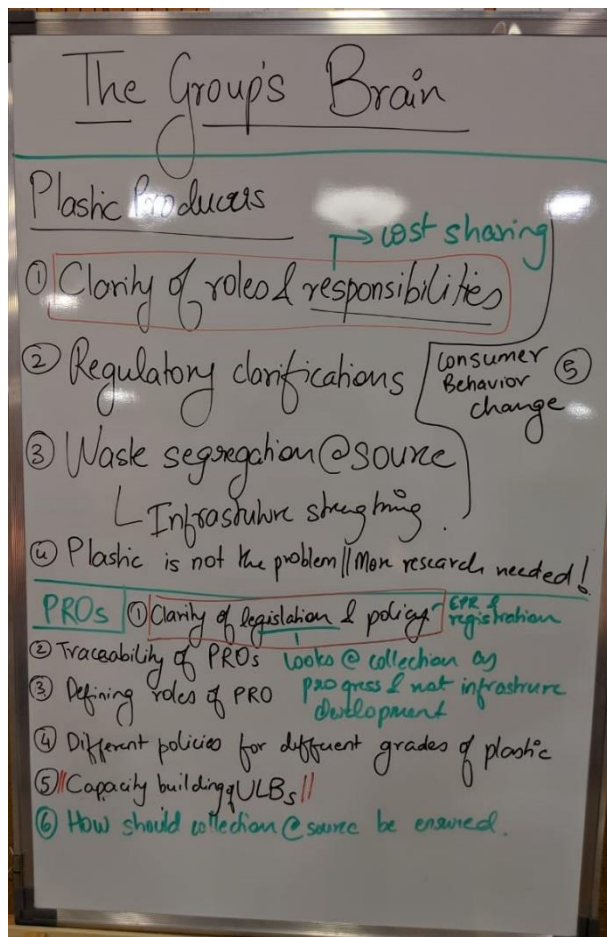 The Group's Brain
Plastic Producers
→ cost sharing
① Clarity of roles & responsibilities
② Regulatory clarifications
Consumer
Behavior ⑤
change
③ Waste segregation @ source
└ Infrastuture strengthning.
④ Plastic is not the problem || More research needed!
PROs ① Clarity of legislation & policy - EPR &
registration
② Traceability of PROs
looks @ collection as
③ Defining roles of PRO
progress & not infrastrure
development
④ Different policies for diffuent grades of plastic
⑤ || Capacity building of ULBs ||
⑥ How should collection @ source be ensured.